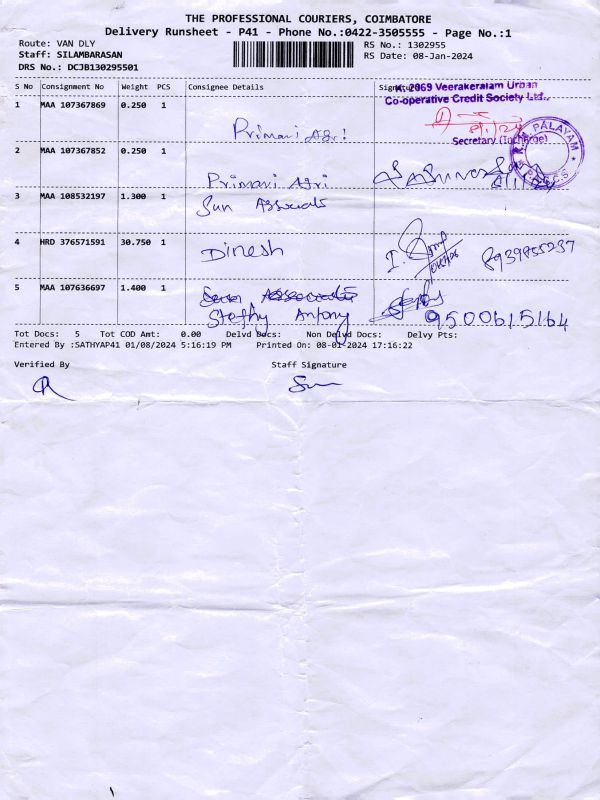 THE PROFESSIONAL COURIERS, COIMBATORE
Delivery Runsheet - P41 - Phone No.:0422-3505555 - Page No.:1
Route: VAN DLY
RS No.: 1302955
Staff: SILAMBARASAN
RS Date: 08-Jan-2024
DRS No.: DCJB130295501
S No Consignment No Weight PCS Consignee Details Signature
K. 2069 Veerakeralam Urban
Co-operative Credit Society Ltd.,
1 MAA 107367869 0.250 1
Primari Agri
Secretary (Incharge)
PALAYAM
2 MAA 107367852 0.250 1
Primari Agri
3 MAA 108532197 1.300 1
Sun Associats
4 HRD 376571591 30.750 1
Dinesh
8939855237
5 MAA 107636697 1.400 1
Stephy Antony
9500615164
Tot Docs: 5 Tot COD Amt: 0.00 Delvd Docs: Non Delvd Docs: Delvy Pts:
Entered By :SATHYAP41 01/08/2024 5:16:19 PM Printed On: 08-01-2024 17:16:22
Verified By Staff Signature